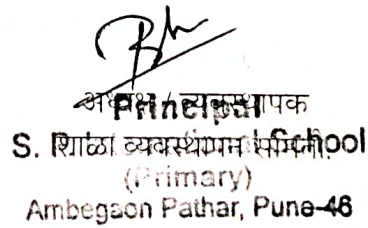 अध्यक्ष / व्यवस्थापक
Principal
शाळा व्यवस्थापन समिती.
S. School
(Primary)
Ambegaon Pathar, Pune-46